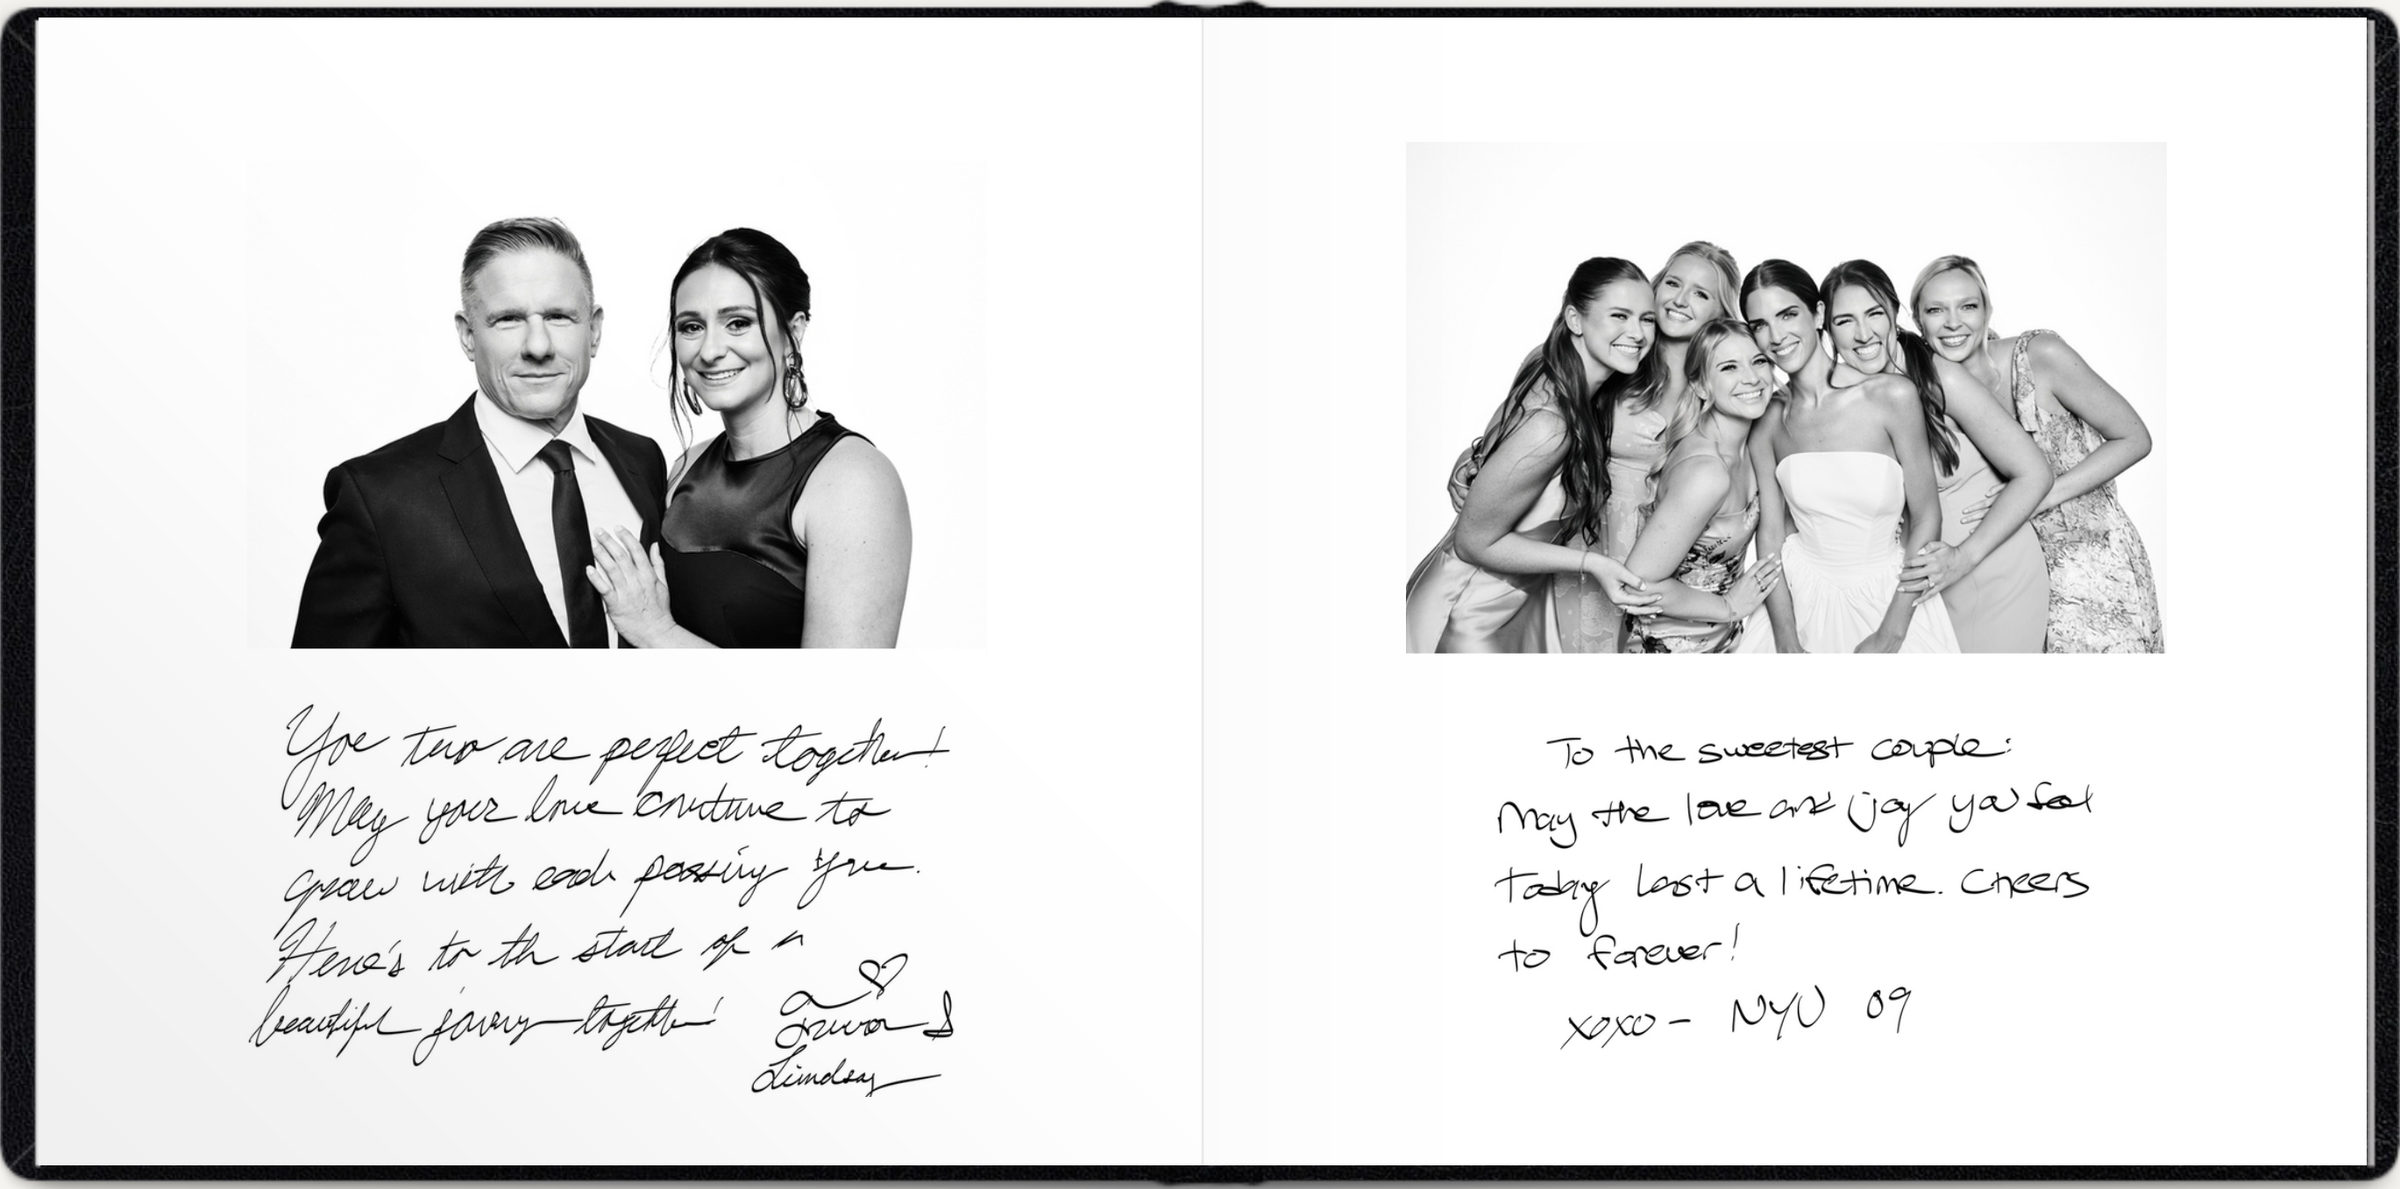 You two are perfect together!
May your love continue to
grow with each passing year.
Here's to the start of a
beautiful journey together!
Trevor &
Lindsay
To the sweetest couple:
May the love and joy you feel
today last a lifetime. Cheers
to forever!
xoxo - NYU 09